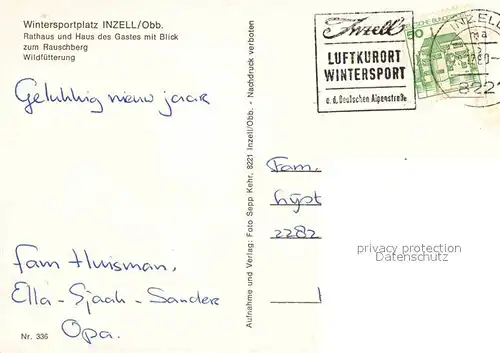 Wintersportplatz INZELL/Obb.
Rathaus und Haus des Gastes mit Blick
zum Rauschberg
Wildfütterung
Gelukkig nieuw jaar
Fam Huisman,
Ella - Sjaak - Sander
Opa.
Nr. 336
Aufnahme und Verlag: Foto Sepp Kehr, 8221 Inzell/Obb. - Nachdruck verboten
Inzell
LUFTKURORT
WINTERSPORT
a. d. Deutschen Alpenstraße
50
INZELL
8221
Fam.
2282
privacy protection
Datenschutz